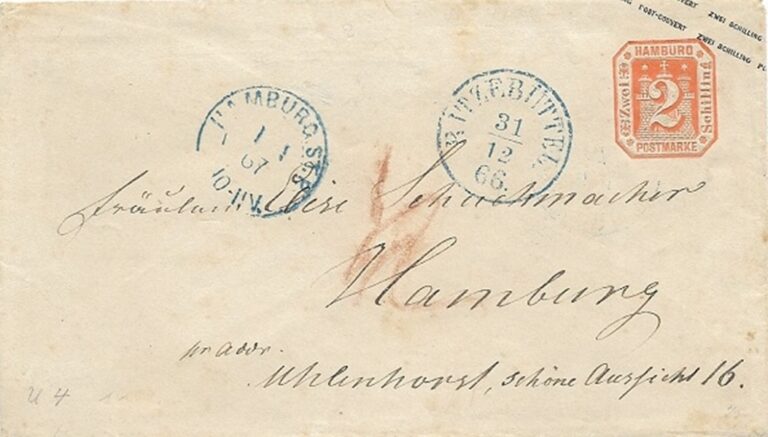 POST-COUVERT ZWEI SCHILLING
POST-COUVERT ZWEI SCHILLING
HAMBURG
Zwei 2 Schilling
POSTMARKE
HAMBURG ST.P.
1 1
67
10-11V.
RITZEBÜTTEL
31
12
66.
Fräulein Elise Schuchmacher
Hamburg
pr addr.
Uhlenhorst, schöne Aussicht 16.
U 4